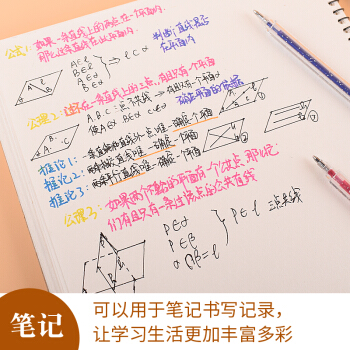 公理1: 如果一条直线上的两点在一个平面内,
那么这条直线在此平面内.
A∈l
B∈l
A∈α
B∈α
⇒ l⊂α
判断直线是否
在平面内
公理2: 过不在一条直线上的三点,有且只有一个平面
A、B、C三点不共线
使A∈α B∈α C∈α
确定平面的依据
推论1: 一条直线和直线外一点唯一确定一个平面
推论2: 两条相交直线唯一确定一个平面
推论3: 两条平行直线唯一确定一个平面
公理3: 如果两个不重合的平面有一个公共点,那么它
们有且只有一条过该点的公共直线
P∈α
P∈β
α∩β=l
P∈l
三点共线
笔记
可以用于笔记书写记录,
让学习生活更加丰富多彩